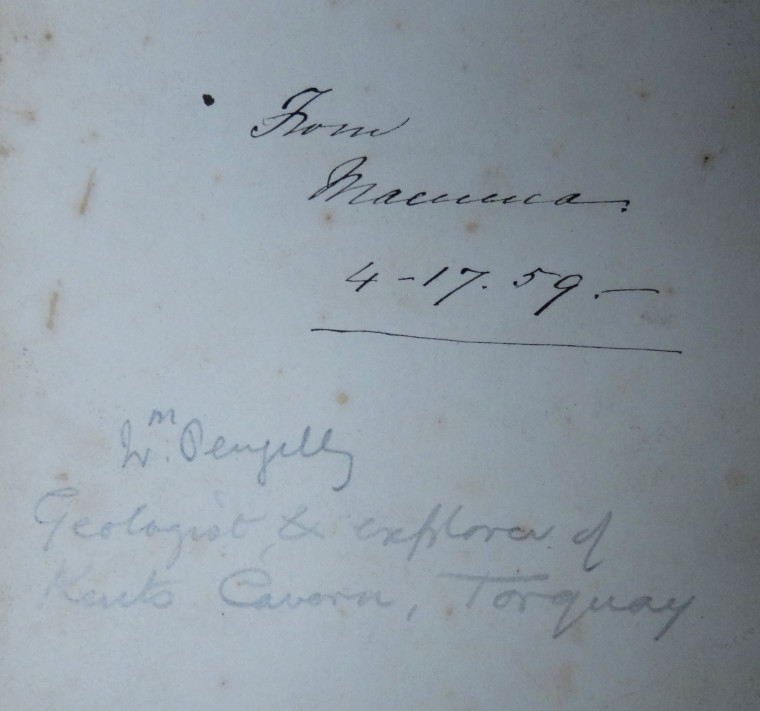 From
Mamma.
4-17.59.—
Wm. Pengelly
Geologist & explorer of
Kents Cavern, Torquay